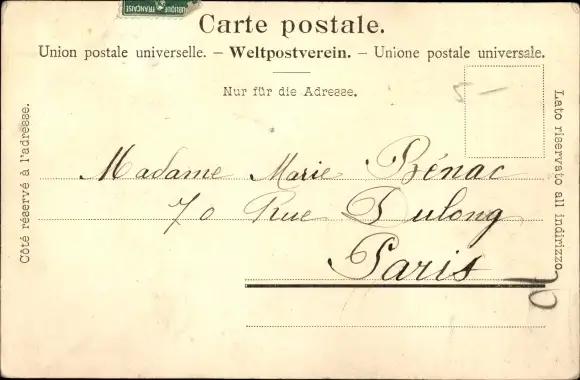 RÉPUBLIQUE FRANÇAISE
Carte postale.
Union postale universelle. – Weltpostverein. – Unione postale universale.
Nur für die Adresse.
Côté réservé à l'adresse.
Lato riservato all indirizzo.
Madame Marie Bénac
70 Rue Dulong
Paris